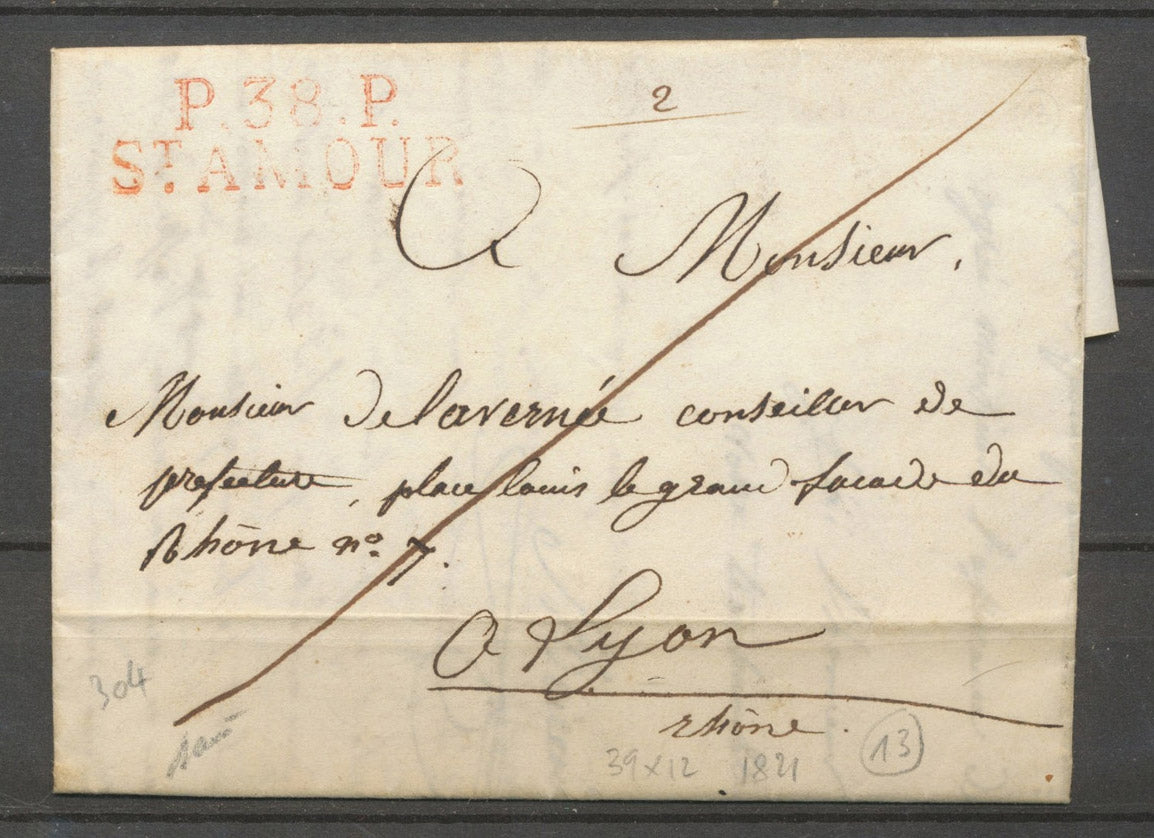 P.38.P.
ST. AMOUR
2
A Monsieur,
Monsieur Delavernée conseiller de
prefecture, place louis le grand facade du
Rhône no. 7.
A Lyon
rhône.
304
39x12 1821 13